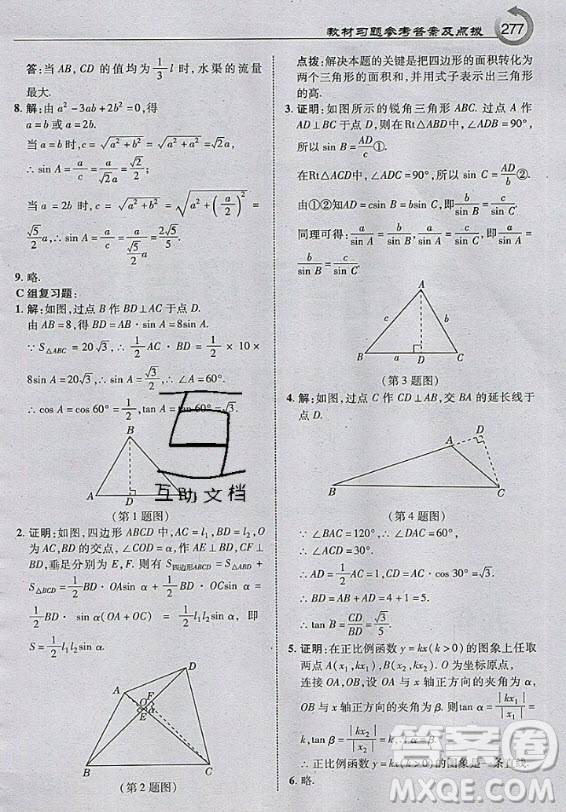 教材习题参考答案及点拨 277
答:当 AB,CD 的值均为 1/3 l 时,水渠的流量
最大.
8. 解:由 a²-3ab+2b²=0,得
a=b 或 a=2b.
当 a=b 时,c=√(a²+b²)=√(a²+a²)=√2 a,
∴ sin A=a/c=a/(√2 a)=√2/2;
当 a=2b 时,c=√(a²+b²)=√(a²+(a/2)²)=
√5/2 a,∴ sin A=a/c=a/(√5/2 a)=2√5/5.
9. 略.
C 组复习题:
1. 解:如图,过点 B 作 BD⊥AC 于点 D.
由 AB=8,得 BD=AB·sin A=8sin A.
∵ S△ABC=20√3,∴ 1/2 AC·BD=1/2×10×
8sin A=20√3,∴ sin A=√3/2,∴ ∠A=60°.
∴ cos A=cos 60°=1/2,tan A=tan 60°=√3.
B
A D C
互助文档
(第 1 题图)
2. 证明:如图,四边形 ABCD 中,AC=l₁,BD=l₂,O
为 AC,BD 的交点,∠COD=α.作 AE⊥BD,CF⊥
BD,垂足分别为 E,F.则有 S四边形ABCD=S△ABD+
S△BCD=1/2 BD·OAsin α+1/2 BD·OCsin α=
1/2 BD·sin α(OA+OC)=1/2 AC·BDsin α,即
S=1/2 l₁l₂sin α.
D
A
O F
E α
B C
(第 2 题图)
点拨:解决本题的关键是把四边形的面积转化为
两个三角形的面积和,并用式子表示出三角形
的高.
3. 证明:如图所示的锐角三角形 ABC.过点 A 作
AD⊥BC 于点 D.在Rt△ABD中,∠ADB=90°,
∴ sin B=AD/c①.
在Rt△ACD中,∠ADC=90°,∴ sin C=AD/b②.
由①②可知AD=csin B=bsin C,∴ b/sin B=c/sin C.
同理可得:a/sin A=b/sin B.∴ a/sin A=b/sin B=c/sin C.
A
c b
B a D C
(第 3 题图)
4. 解:如图,过点 C 作 CD⊥AB,交 BA 的延长线于
点 D.
D
A
B C
(第 4 题图)
∵ ∠BAC=120°,∴ ∠DAC=60°,
∴ ∠ACD=30°,
∴ AD=1/2 AC=1,∴ CD=AC·cos 30°=√3,
∴ BD=5,∴ BC=√(BD²+CD²)=2√7,
∴ sin B=CD/BC=√3/(2√7)=√21/14.
5. 证明:在正比例函数 y=kx(k>0)的图象上任取
两点 A(x₁,kx₁),B(x₂,kx₂),O 为坐标原点,
连接 OA,OB,设 OA 与 x 轴正方向的夹角为 α,
OB 与 x 轴正方向的夹角为 β,则tan α=|kx₁|/|x₁|=
k,tan β=|kx₂|/|x₂|=k,∴ tan α=tan β,∴ α=β,
∴ 正比例函数 y=kx(k>0)的图象是一条直线.
6. 略.
答案圈